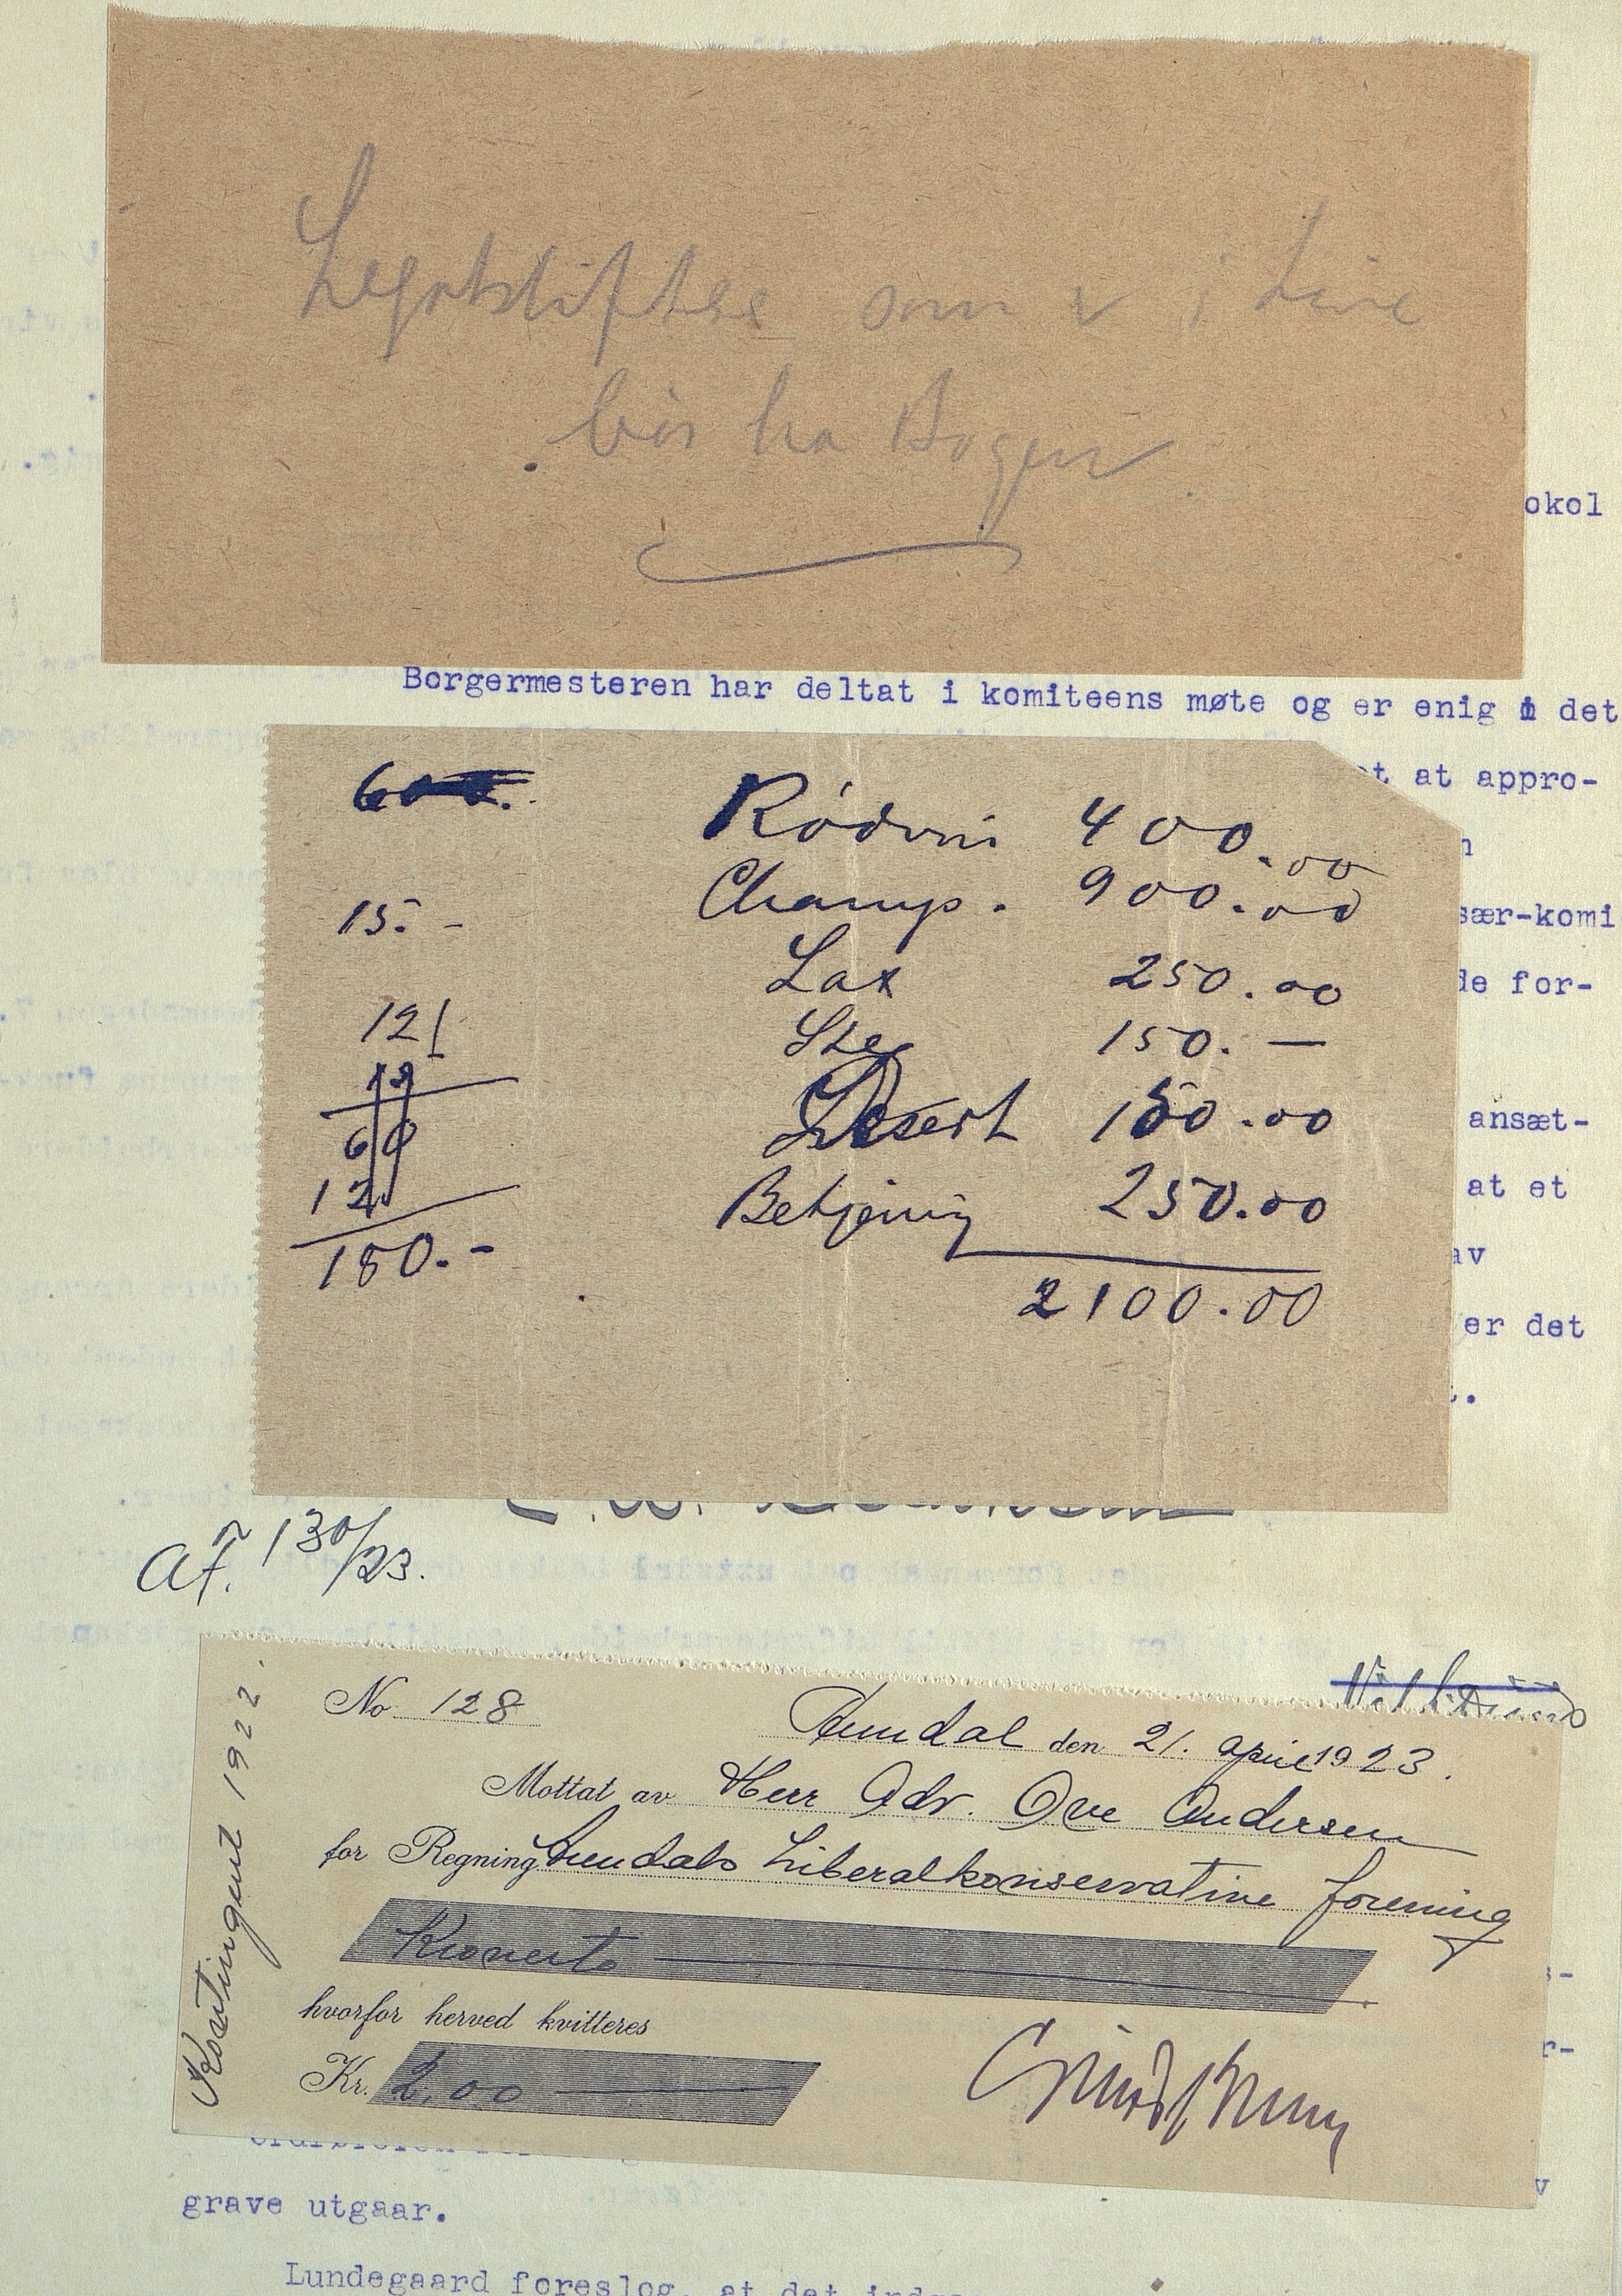 Legatstiftere som er i Live
bør ha Bogen
okol
Borgermesteren har deltat i komiteens møte og er enig i det
at appro-
n
sær-komi
de for-
ansæt-
at et
av
er det
t.
600.
15.-
121
12
60
12
180.-
Rødvin 400.00
Champ. 900.00
Lax 250.00
Ste 150.—
Desert 150.00
Betjening 250.00
2100.00
130/23.
No 128
Arendal den 21. april 1923.
Mottat av Herr Adv. Ove Andersen
for Regning Arendals Liberalkonservative forening
Kroner to
hvorfor herved kvitteres
Kr. 2.00
Kontingent 1922.
s-
r-
v
grave utgaar.
Lundegaard foreslog, at det